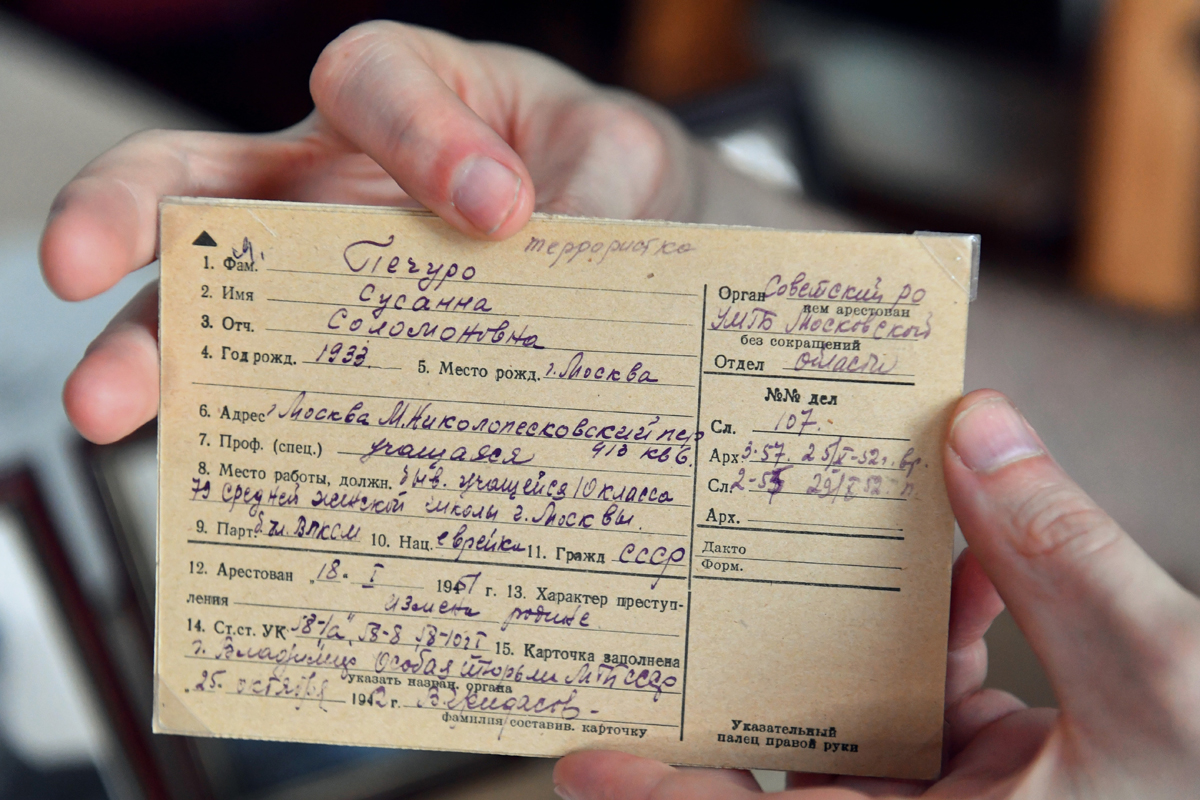 террористка
1. Фам. Печуро
2. Имя Сусанна
3. Отч. Соломоновна
4. Год рожд. 1933. 5. Место рожд. г. Москва
6. Адрес г. Москва М. Николопесковский пер
7. Проф. (спец.) учащаяся кв 6.
8. Место работы, должн. учащейся 10 класса
79 средней женской школы г. Москвы.
9. Парт. чл. ВЛКСМ 10. Нац. еврейка 11. Гражд СССР
12. Арестован „18. I 1951 г. 13. Характер преступ-
ления измена родине
14. Ст.ст. УК 58-8 15. Карточка заполнена
г. Владимир Особая тюрьма МГБ СССР
указать назван. органа
„25. октября 1952 г.
фамилия составив. карточку
Орган Советский РО
кем арестован
УМГБ Московской
без сокращений
Отдел области
№№ дел
Сл. 107.
Арх
Сл.
Арх.
Дакто
Форм.
Указательный
палец правой руки